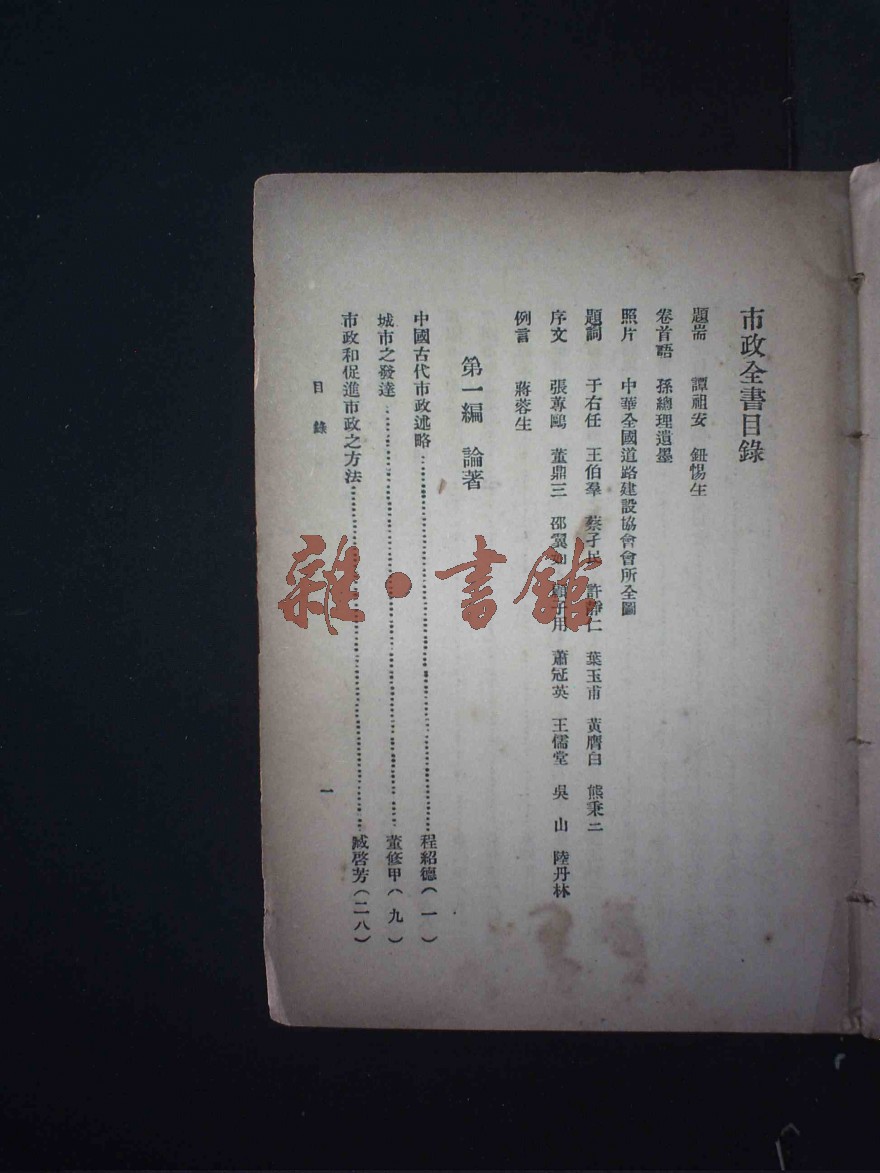 市政全書目錄
題耑 譚祖安 鈕惕生
卷首語 孫總理遺墨
照片 中華全國道路建設協會會所全圖
題詞 于右任 王伯羣 蔡孑民 許靜仁 葉玉甫 黃膺白 熊秉三
序文 張蓴鷗 董鼎三 邵翼如 顧子用 蕭冠英 王儒堂 吳山 陸丹林
例言 蔣蓉生
第一編 論著
中國古代市政述略……程紹德(一)
城市之發達……董修甲(九)
市政和促進市政之方法……臧啓芳(二八)
目錄
一
雜·書館